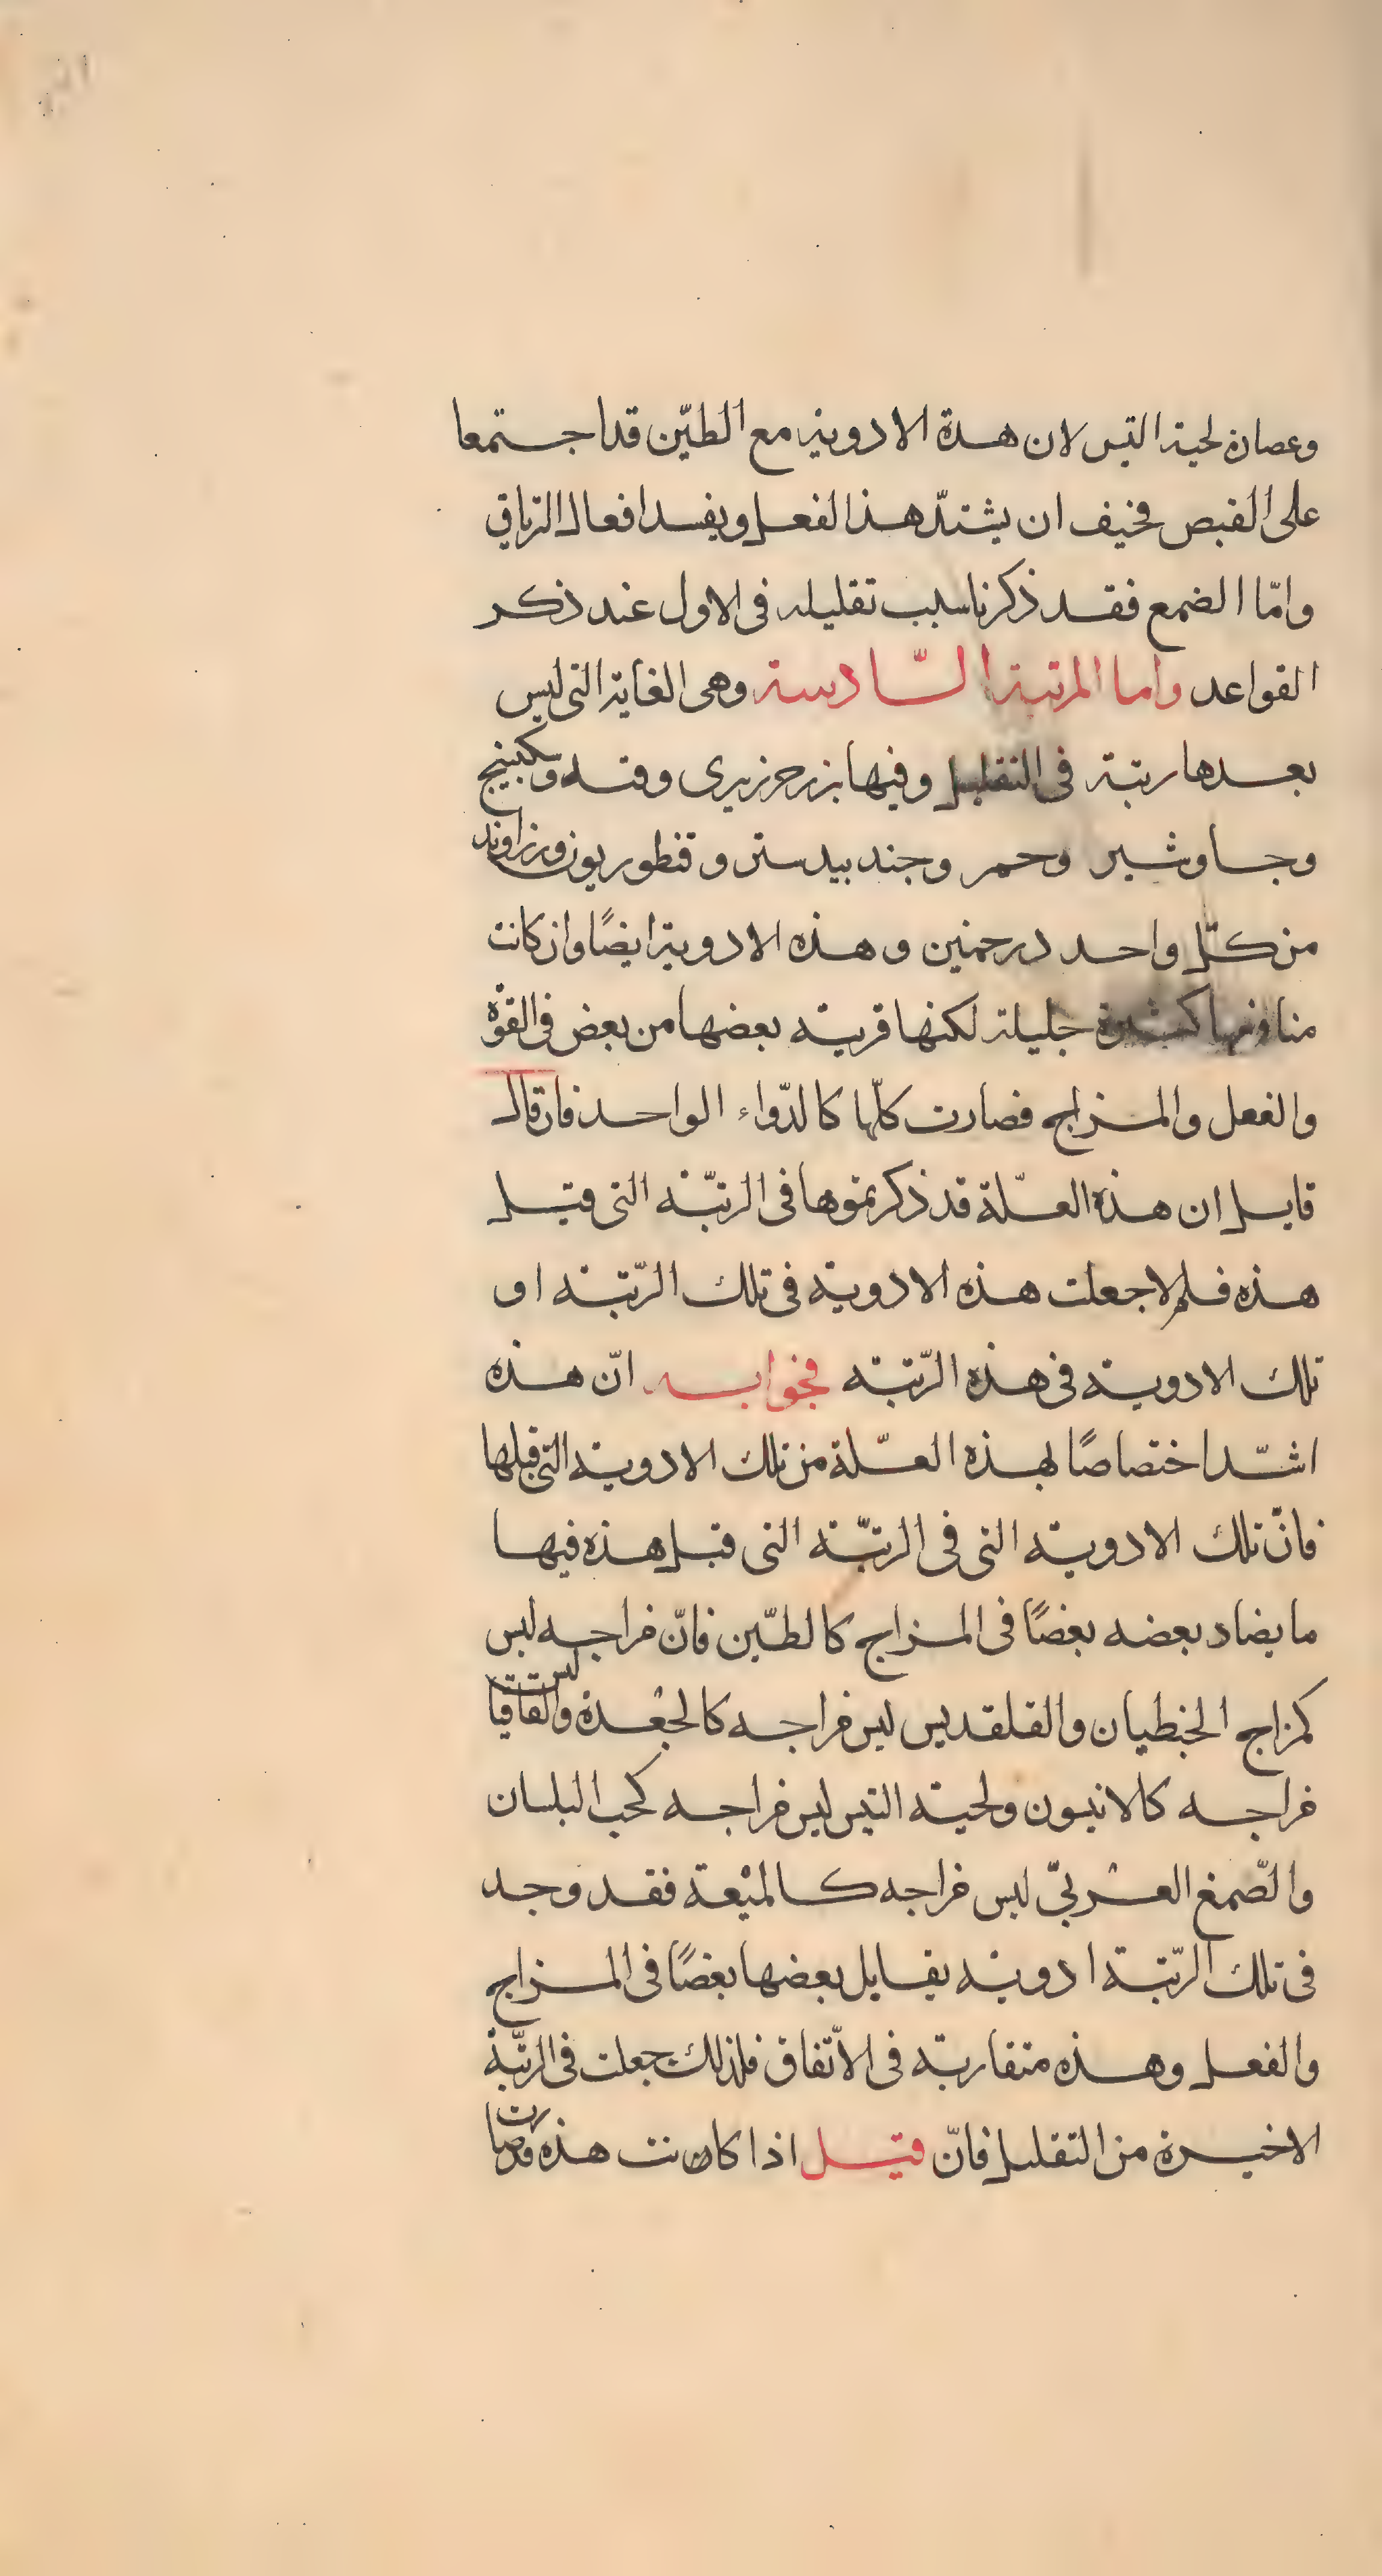 وعصارة لحية التيس لان هذة الادوية مع الطيّن قد اجستمعا
على القبص فخيف ان يشتدّ هذا الفعل ويفسد افعال الترياق
وامّا الضمع فقد ذكرنا سبب تقليله فى الاول عند ذكر
القواعد واما المرتبة السّادسة وهى الغاية التى ليس
بعدها رتبة فى التقليل وفيها بزر جرزبرى وقنه وسكبينج
وجاوشير وحمر وجندبيدستر وقنطوريون وزراوند
من كلّ واحد درحمين وهذه الادوية ايضًا وان كانت
منافعها كثيرة جليلة لكنها قريبة بعضها من بعض فى القوّة
والفعل والمزاج فصارت كلّها كالدّواء الواحد فان قال
قايل ان هذه العلّة قد ذكرتموها فى الرتبّة التى قبل
هذه فلم لا جعلت هذه الادوية فى تلك الرّتبة او
تلك الادوية فى هذه الرّتبة فجوابه انّ هذه
اشدّ اختصاصًا بهذه العلّة من تلك الادوية التى قبلها
فانّ تلك الادوية التى فى الرتبّة التى قبل هذه فيها
ما يضاد بعضه بعضًا فى المزاج كالطّين فانّ مزاجه ليس
كمزاج الجنطيان والقلقديس ليس مزاجه كالجعدة والقاقيا ليس
مزاجه كالانيسون ولحية التيس ليس مزاجه كحب البلسان
والصّمغ العربىّ ليس مزاجه كالميعة فقد وجد
فى تلك الرّتبة ادوية يقابل بعضها بعضًا فى المزاج
والفعل وهذه متقاربة فى الاتّفاق فلذلك جعلت فى الرتبّة
الاخيرة من التقليل فانّ قيل اذا كانت هذه قد صارت